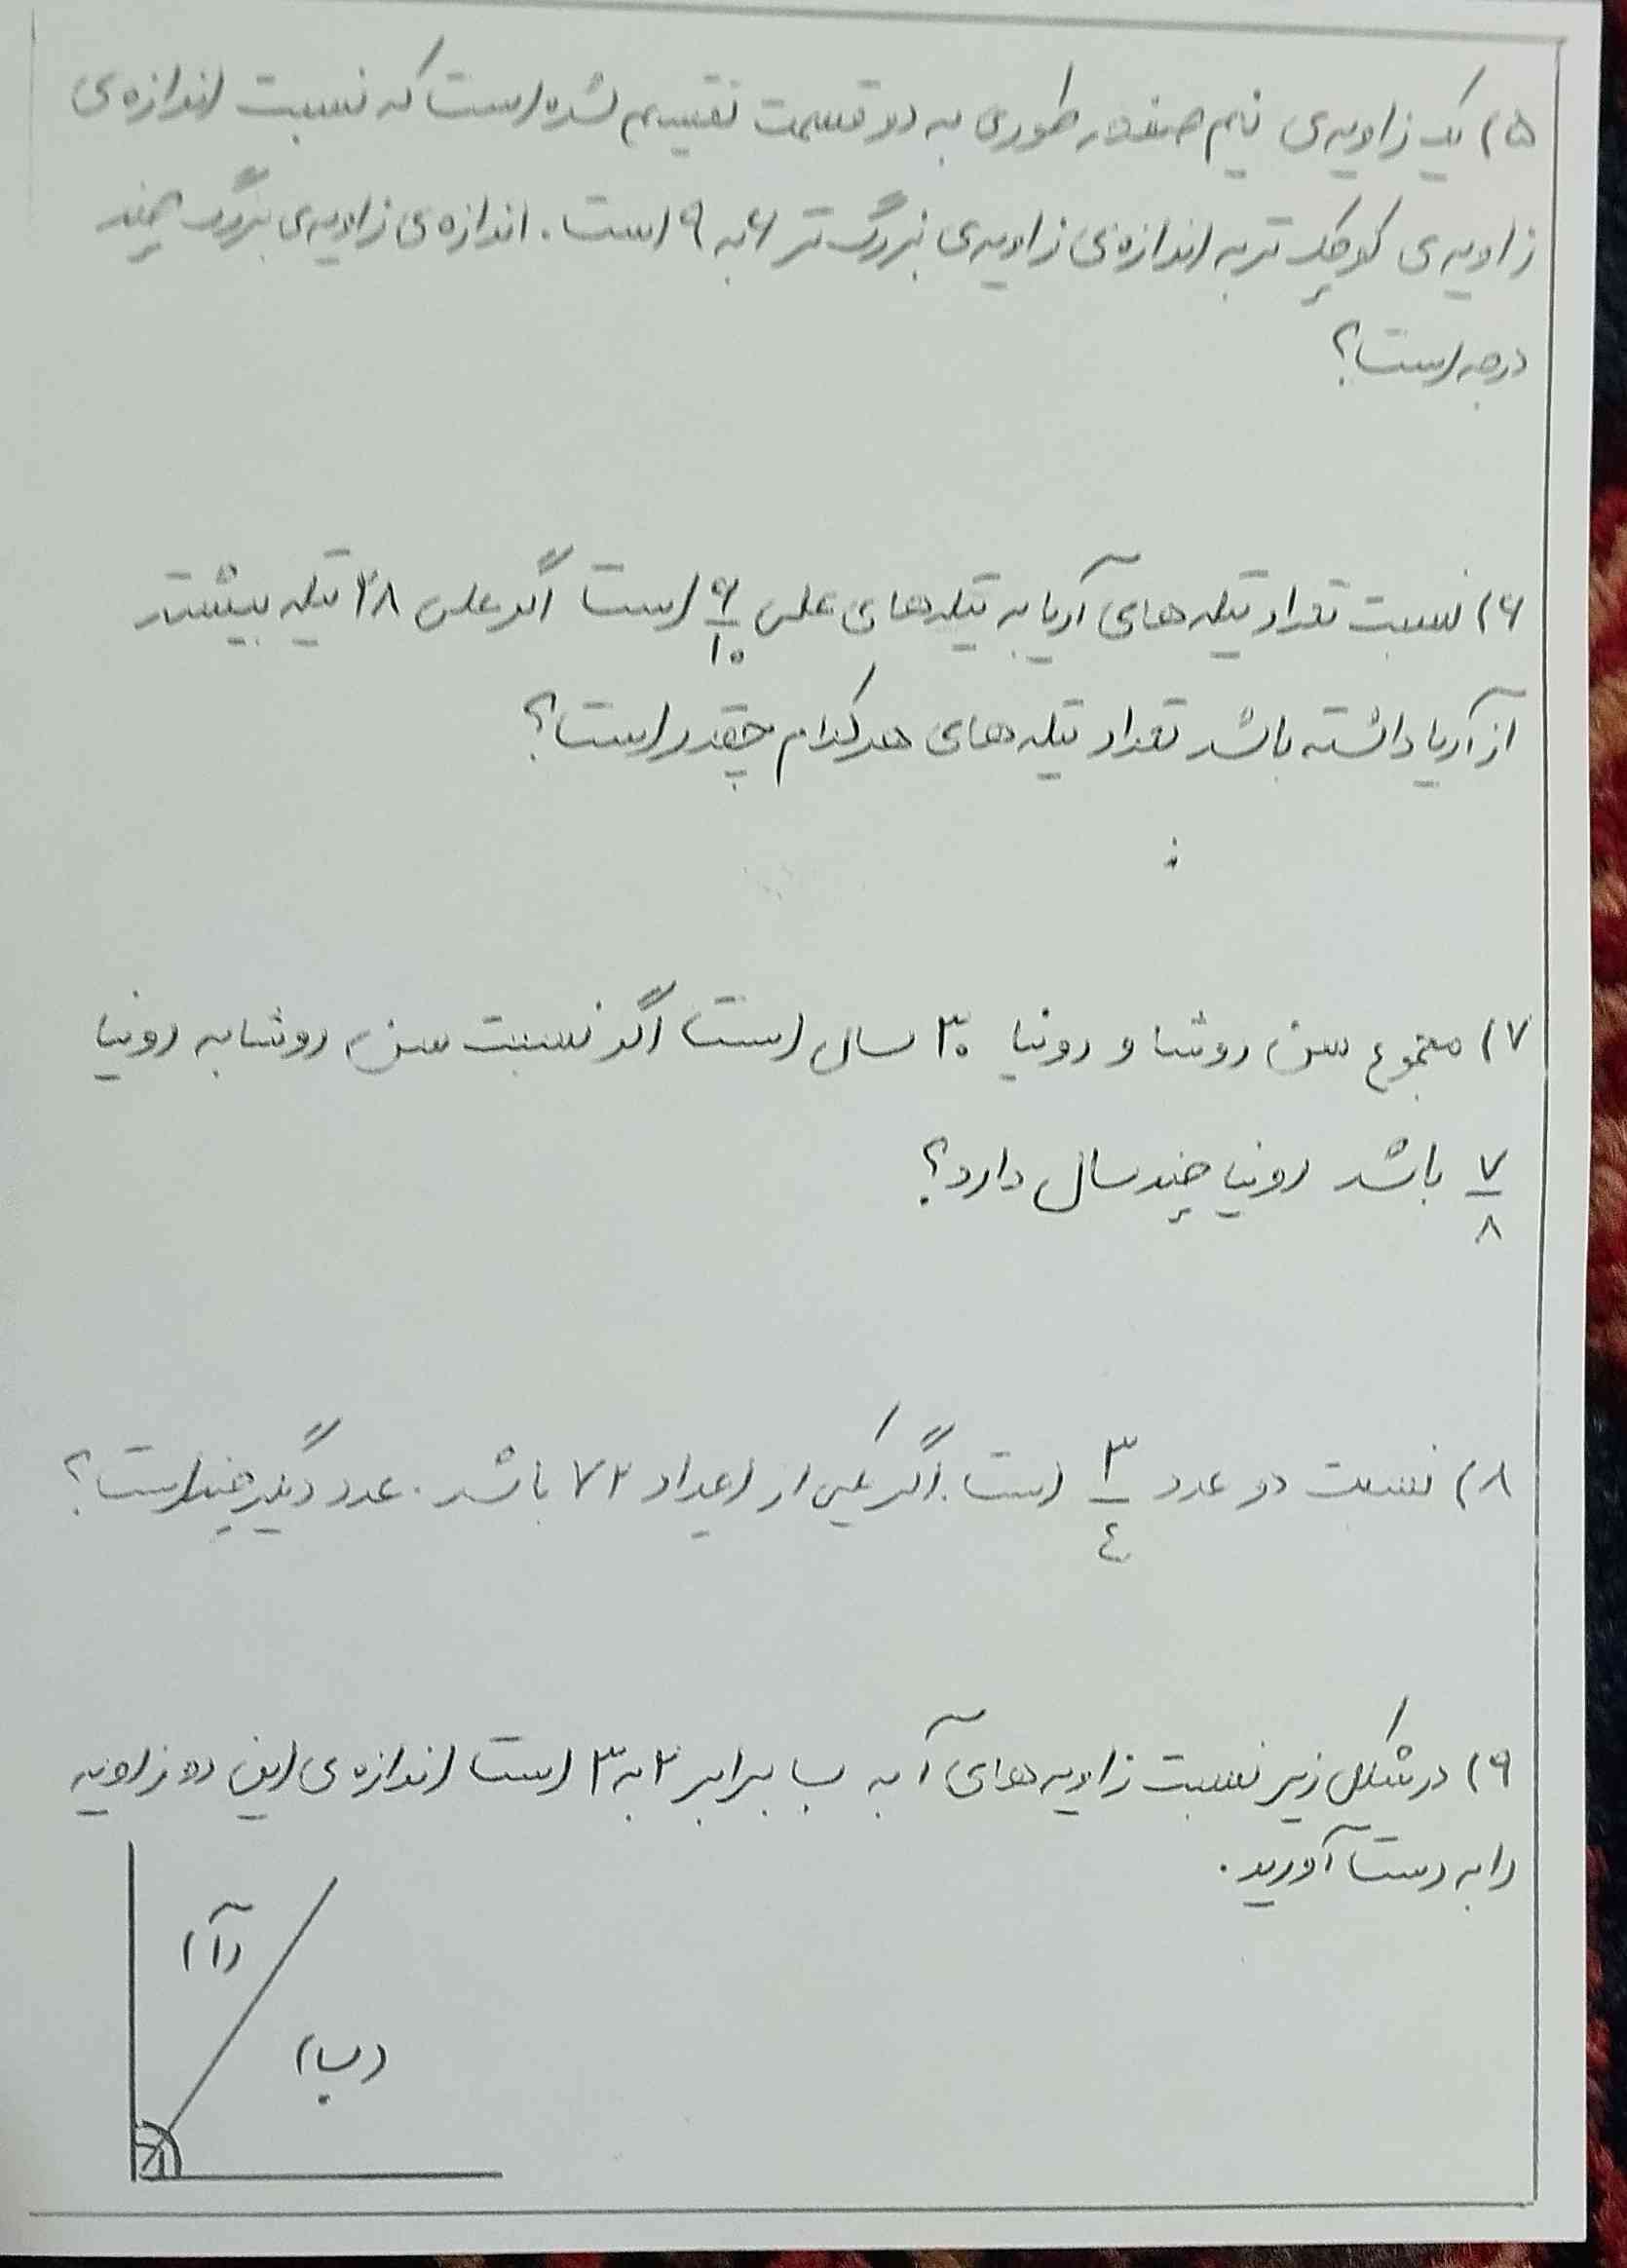 ۵) یک زاویه‌ی نیم صفحه طوری به دو قسمت تقسیم شده است که نسبت اندازه‌ی
زاویه‌ی کوچک تر به اندازه‌ی زاویه‌ی بزرگ تر ۶ به ۹ است. اندازه‌ی زاویه‌ی بزرگ چند
درجه است؟
۶) نسبت تعداد تیله های آریا به تیله های علی ۶/۱۰ است اگر علی ۲۸ تیله بیشتر
از آریا داشته باشد تعداد تیله های هر کدام چقدر است؟
۷) مجموع سن روشا و رونیا ۳۰ سال است اگر نسبت سن روشا به رونیا
۷/۸ باشد رونیا چند سال دارد؟
۸) نسبت دو عدد ۳/۴ است. اگر یکی از اعداد ۷۲ باشد. عدد دیگر چند است؟
۹) در شکل زیر نسبت زاویه های آ به ب برابر ۲ به ۳ است اندازه‌ی این دو زاویه
را به دست آورید.
(آ)
(ب)